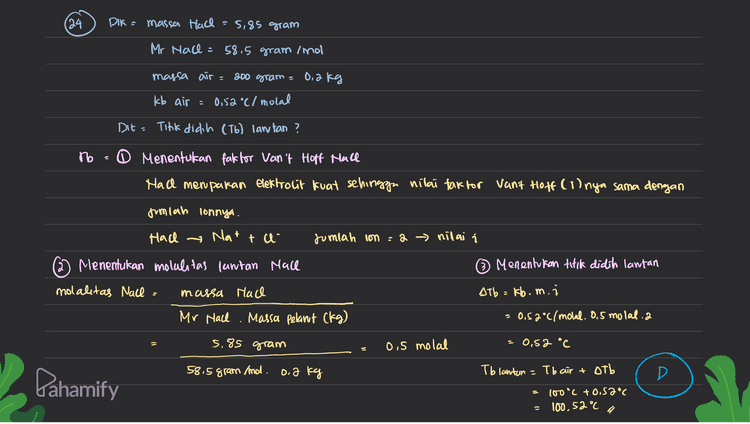 24 Dik = massa NaCl = 5,85 gram
Mr NaCl = 58.5 gram/mol
massa air = 200 gram = 0,2 kg
kb air = 0,52 °C/molal
Dit = Titik didih (Tb) larutan ?
Jb = ① Menentukan faktor Van't Hoff NaCl
NaCl merupakan elektrolit kuat sehingga nilai faktor Van't Hoff (i) nya sama dengan
jumlah ionnya.
NaCl → Na⁺ + Cl⁻ Jumlah ion = 2 → nilai i
② Menentukan molalitas larutan NaCl
molalitas NaCl = massa NaCl
Mr NaCl . Massa pelarut (kg)
= 5.85 gram = 0,5 molal
58.5 gram/mol. 0,2 kg
③ Menentukan titik didih larutan
ΔTb = Kb. m. i
= 0,52 °C/molal. 0,5 molal .2
= 0,52 °C
Tb larutan = Tb air + ΔTb
= 100°C + 0,52°C
= 100,52 °C
D
Pahamify